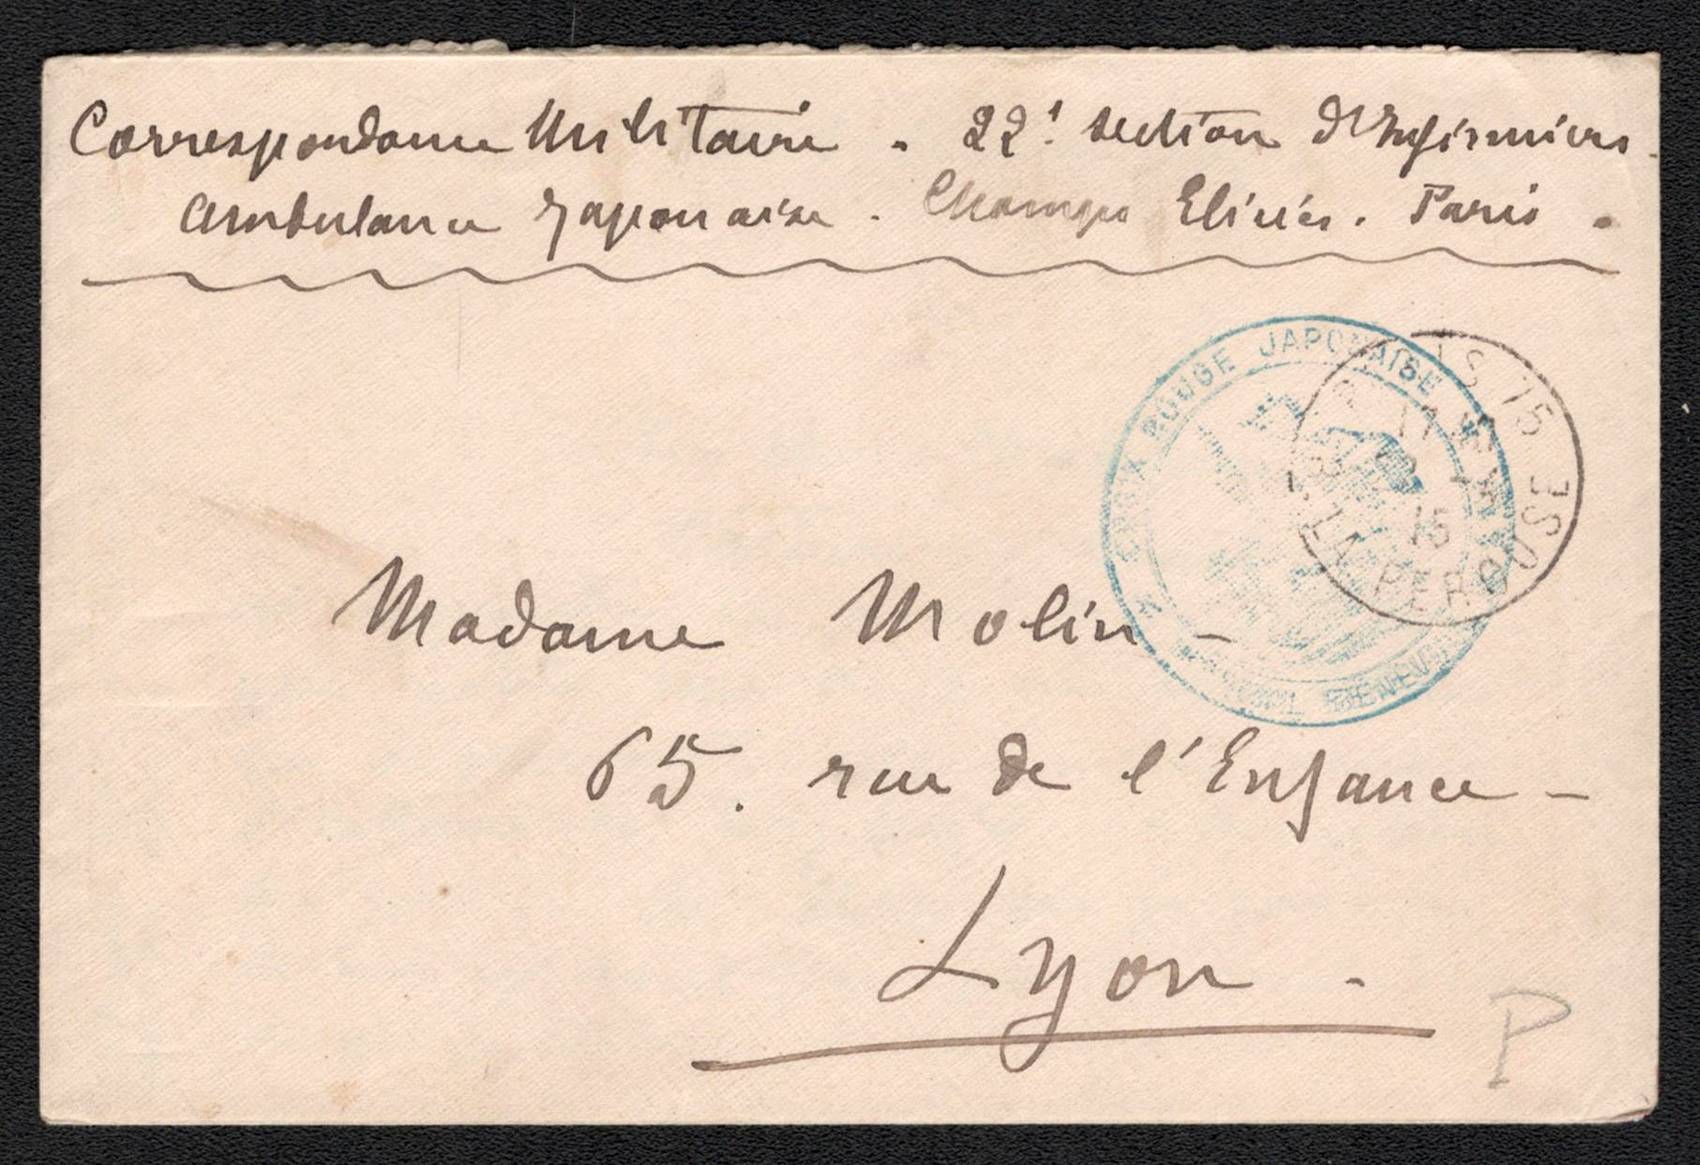 Correspondance Militaire. 22e section d'Infirmiers.
Ambulance Japonaise. Champs Elisées. Paris.
CROIX ROUGE JAPONAISE
HÔPITAL BÉNÉV
PARIS 75
17
15
LA PEROUSE
Madame Molin -
65. rue de l'Enfance -
Lyon.
P